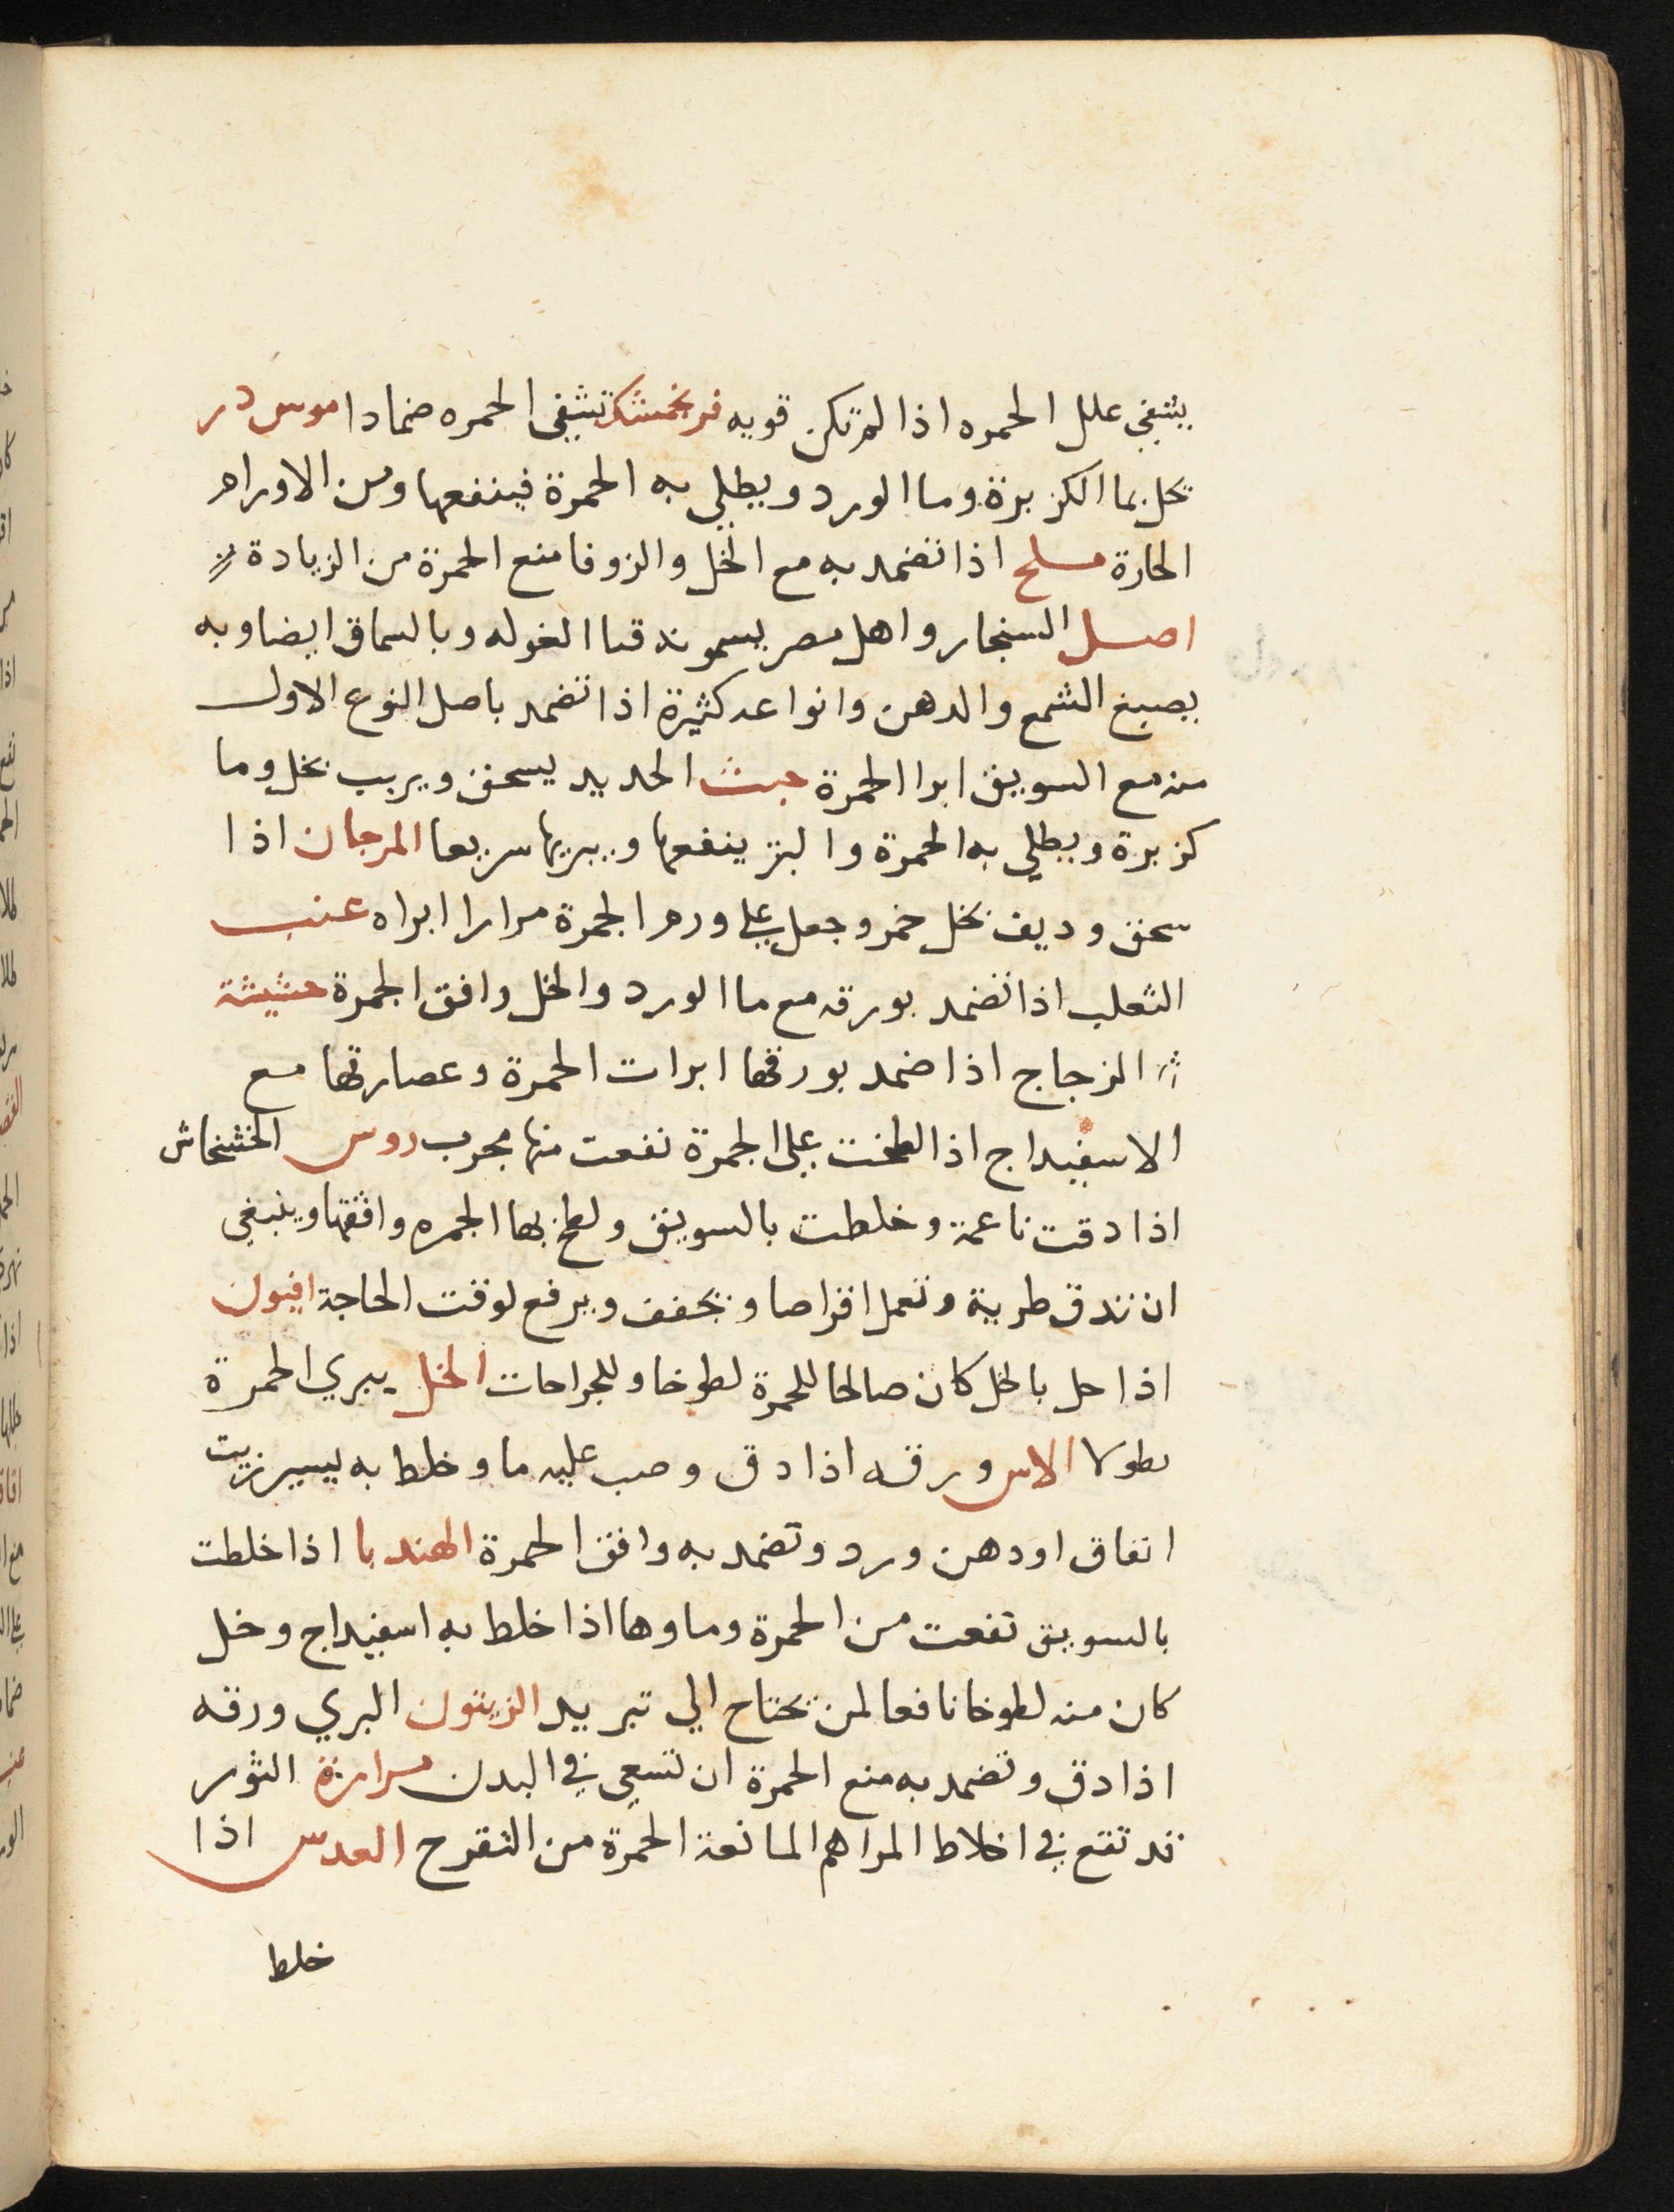 يشفي علل الحمره اذا لم تكن قويه فرنجمشك تشفي الحمره ضمادا موس در
يحل بما الكزبرة وما الورد ويطلي به الحمرة فينفعها ومن الاورام
الحارة مسلح اذا تضمد به مع الخل والزوفا منع الحمرة من الزيادة
اصل السنجار واهل مصر يسمونه قنا الغوله وبالسماق ايضا وبه
يصبغ الشمع والدهن وانواعه كثيرة اذا تضمد باصل النوع الاول
منه مع السويق ابرا الحمرة خبث الحديد يسحق ويربب بخل وما
كزبرة ويطلي به الحمرة والبثر ينفعها ويبريها سريعا المرجان اذا
سحق وديف بخل خمر وجعل علي ورم الحمرة مرارا ابراه عنب
الثعلب اذا تضمد بورقه مع ما الورد والخل وافق الحمرة حشيشة
الزجاج اذا ضمد بورقها ابرات الحمرة وعصارتها مع
الاسفيداج اذا لطخت علي الحمرة نفعت منها مجرب روس الخشخاش
اذا دقت ناعمة وخلطت بالسويق ولطخ بها الحمره وافقها وينبغي
ان تدق طرية وتعمل اقراصا وتجفف ويرفع لوقت الحاجة افيون
اذا حل بالخل كان صالحا للحمرة لطوخا وللجراحات الخل يبري الحمرة
نطولا الاس ورقه اذا دق وصب عليه ما وخلط به يسير زيت
انفاق او دهن ورد وتضمد به وافق الحمرة الهندبا اذا خلطت
بالسويق نفعت من الحمرة وماوها اذا خلط به اسفيداج وخل
كان منه لطوخا نافعا لمن تحتاج الي تبريد الزيتون البري ورقه
اذا دق وتضمد به منع الحمرة ان تسعي في البدن مرارة الثور
قد تقع في اخلاط المراهم المانعة الحمرة من التقرح العدس اذا
خلط